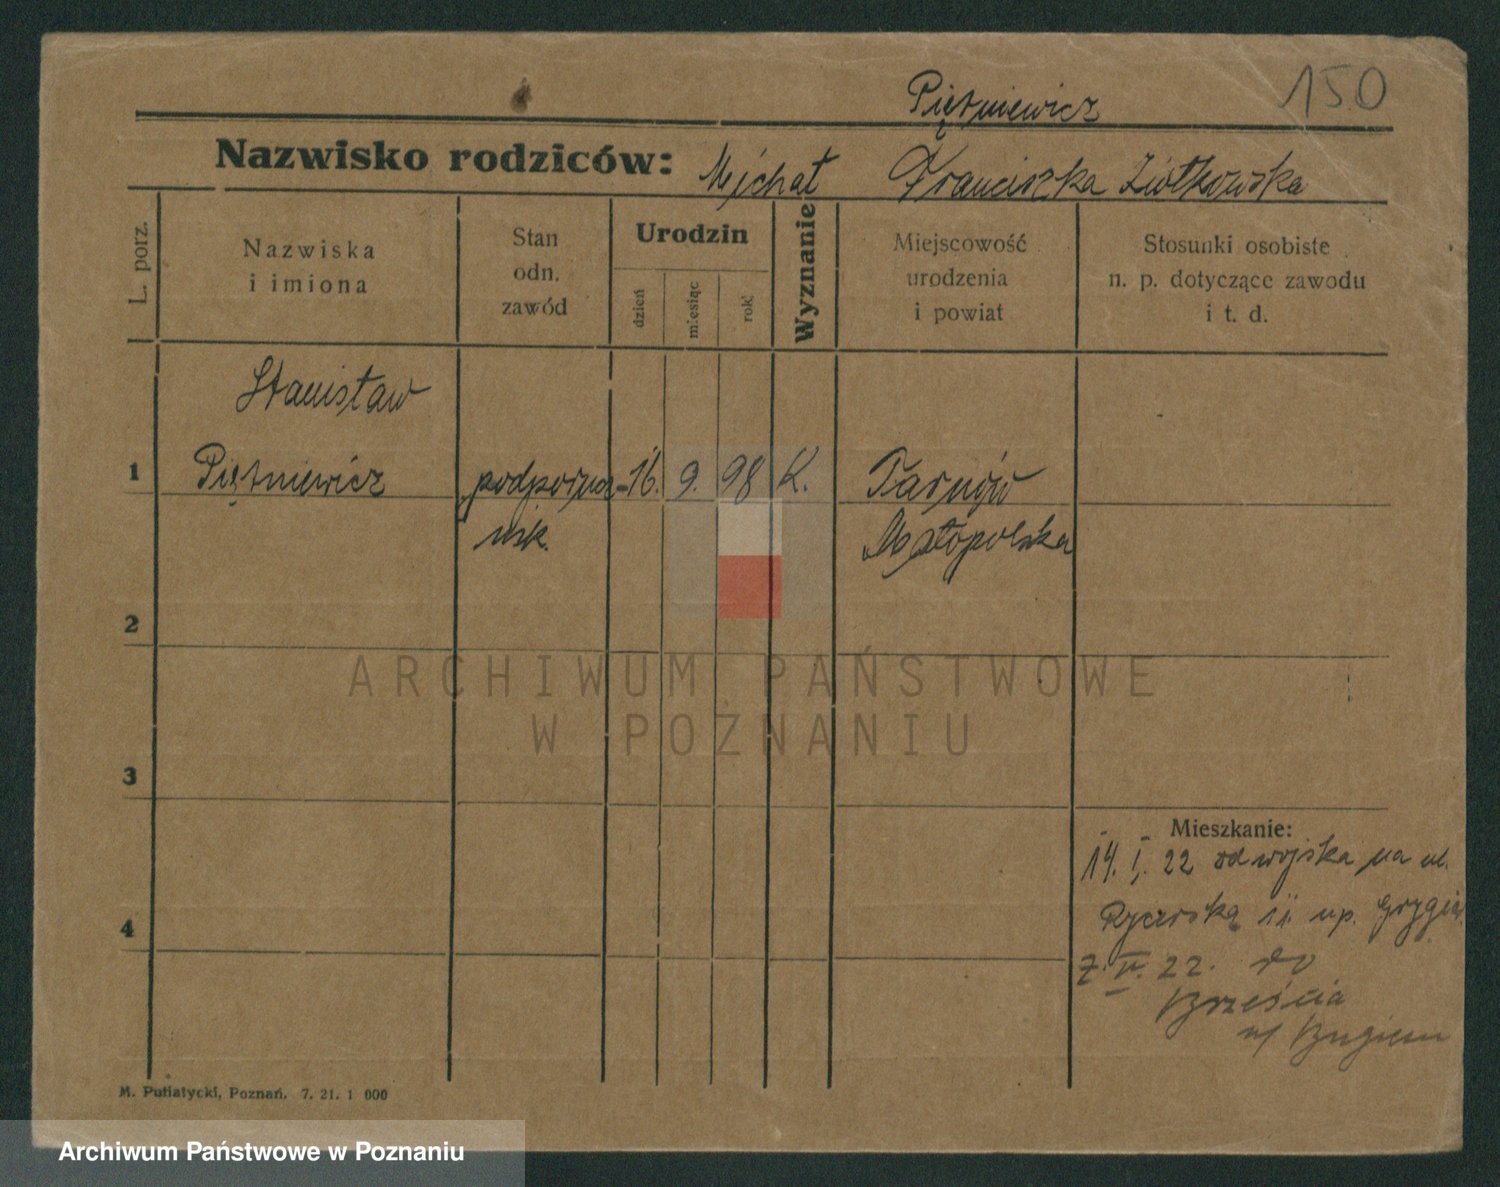 Piętniewicz 150
Nazwisko rodziców: Michał Franciszka Ziółkowska
L. porz.
Nazwiska
i imiona
Stan
odn.
zawód
Urodzin
dzień
miesiąc
rok
Wyznanie
Miejscowość
urodzenia
i powiat
Stosunki osobiste
n. p. dotyczące zawodu
i t. d.
Stanisław
1 Piętniewicz podporucz- 16. 9. 98 K. Tarnów
nik. Małopolska
2
ARCHIWUM PAŃSTWOWE
W POZNANIU
3
Mieszkanie:
14. I. 22 od wojska na ul.
4 Rycerską 11. up.
22. do
Brześcia
n/ Bugiem
M. Putiatycki, Poznań. 7. 21. 1 000
Archiwum Państwowe w Poznaniu